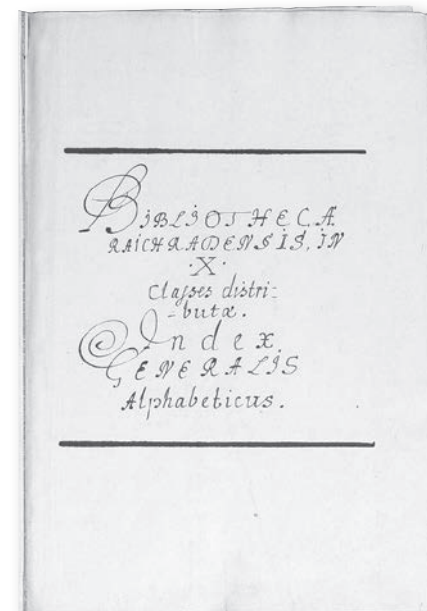 BIBLIOTHECÆ
RAICHRADENSIS, IN
·X·
Classes distri-
-butæ.
Index
GENERALIS
Alphabeticus.